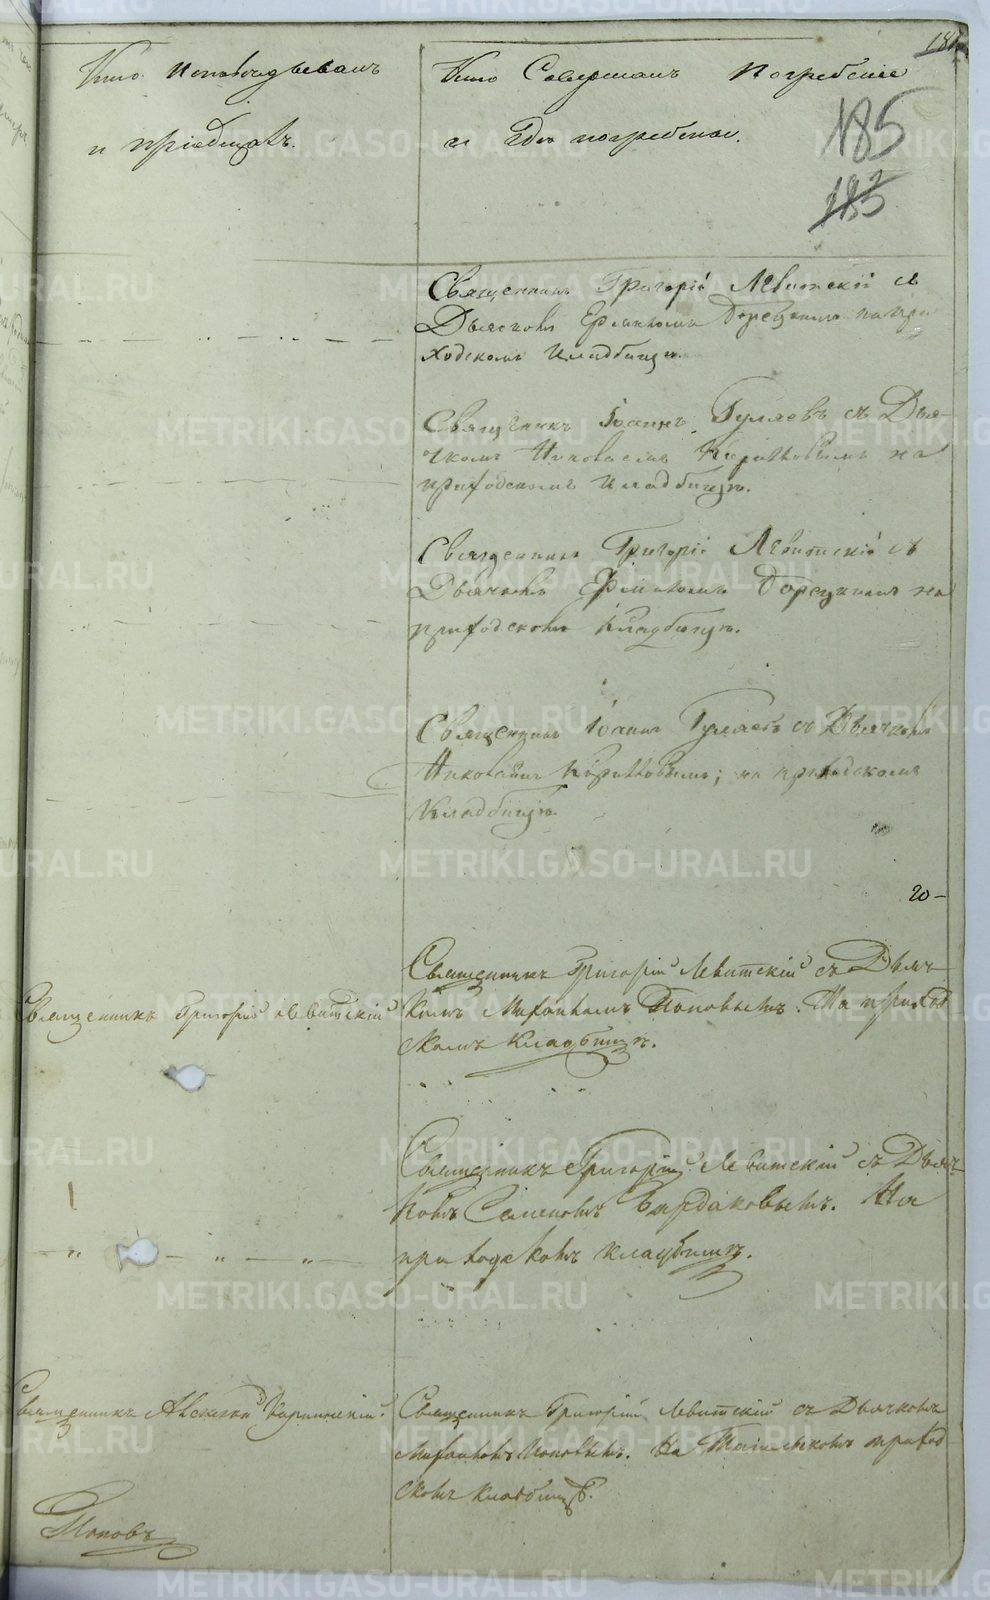 Кто исповѣдывалъ
и пріобщалъ.
Кто Совершалъ Погребеніе
и Гдѣ погребены.
185
Священникъ Григорій Левитскій съ
Дьячкомъ Борецкимъ на при
ходскомъ кладбищѣ.
Священникъ Іоаннъ Гуляевъ съ Дья-
чкомъ Николаемъ на
приходскомъ кладбищѣ.
Священникъ Григорій Левитскій съ
Дьячкомъ Борецкимъ на
приходскомъ кладбищѣ.
Священникъ Іоаннъ Гуляевъ съ Дьячкомъ
Николаемъ на приходскомъ
кладбищѣ.
20-
Священникъ Григорій Левитскій
Священникъ Григорій Левитскій съ Дьяч
комъ Поповымъ. На приход
скомъ кладбищѣ.
Священникъ Григорій Левитскій съ Дьяч
комъ Семеномъ Бурдаковымъ. На
приходскомъ кладбищѣ.
Священникъ Алексѣй
Священникъ Григорій Левитскій съ Дьячкомъ
Поповымъ. На приход
скомъ кладбищѣ.
Поповъ
METRIKI.GASO-URAL.RU